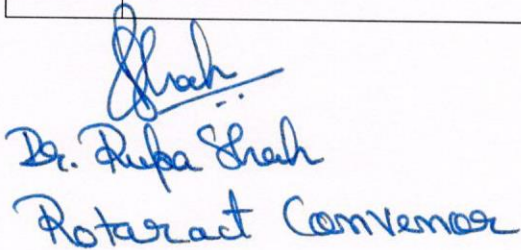 Shah
Dr. Rupa Shah
Rotaract Convenor